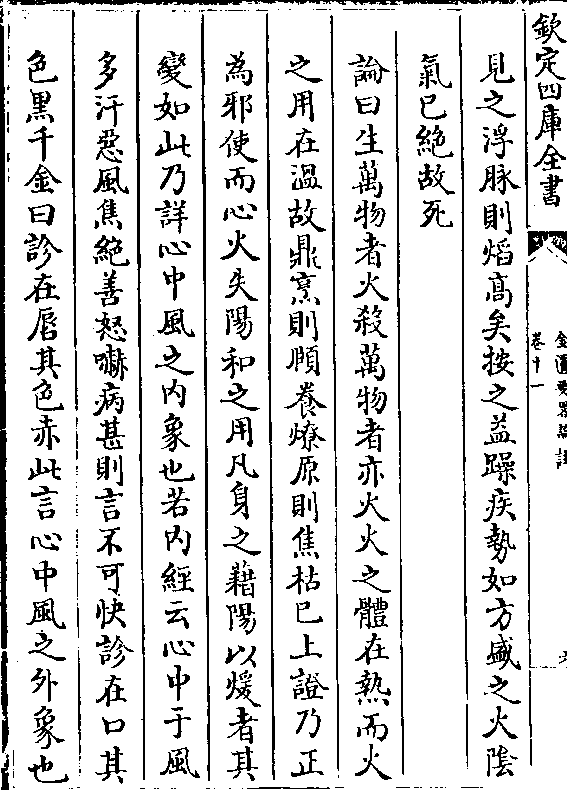 欽定四庫全書
金匱要略論註
卷十一
見之浮脉則焰高矣按之益躁疾勢如方盛之火陰
氣已絶故死
論曰生萬物者火殺萬物者亦火火之體在熱而火
之用在溫故鼎烹則頤養燎原則焦枯已上證乃正
為邪使而心火失陽和之用凡身之藉陽以煖者其
變如此乃詳心中風之内象也若内經云心中于風
多汗惡風焦絶善怒嚇病甚則言不可快診在口其
色黒千金曰診在唇其色赤此言心中風之外象也